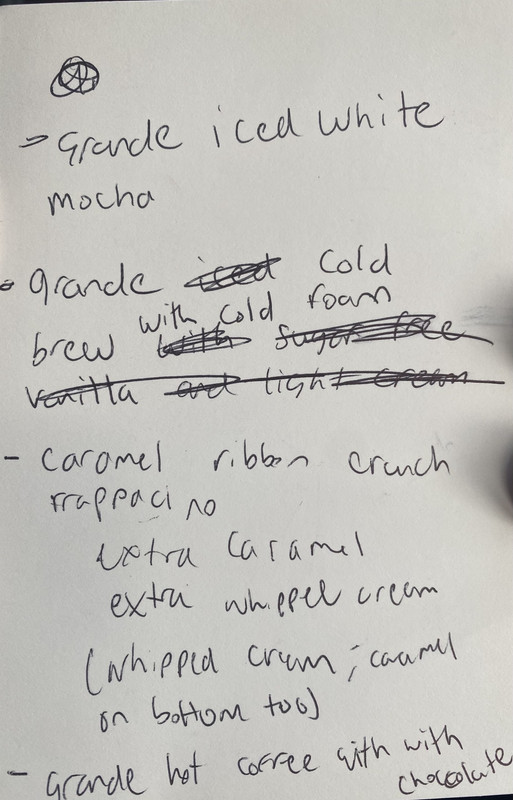 → Grande iced white
mocha
- grande iced cold
with cold foam
brew with sugar free
vanilla and light cream
- Caramel ribbon crunch
frappacino
extra caramel
extra whipped cream
(whipped cream ; caramel
on bottom too)
- Grande hot coffee with with
choccolate